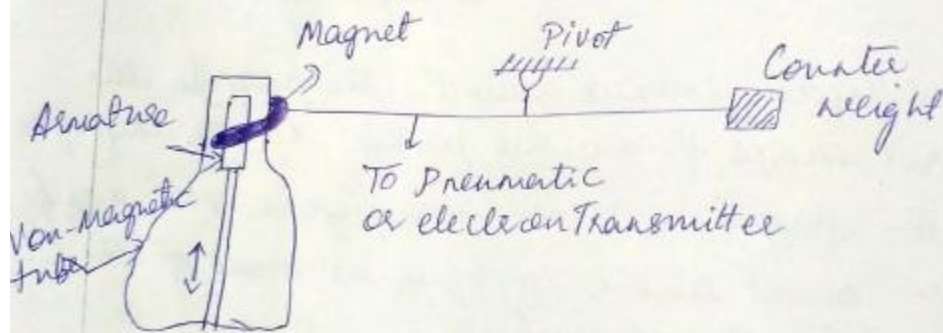 Magnet
Pivot
Counter
weight
Armature
To Pneumatic
or electron Transmitter
Non-magnetic
tube